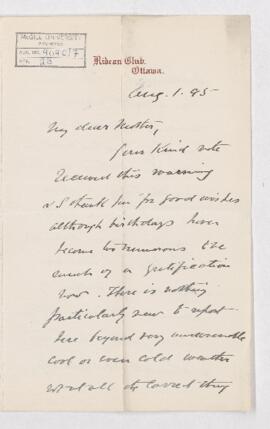 McGILL UNIVERSITY
ARCHIVES
ACC. NO. 909C/7
REF. 23
Rideau Club,
Ottawa.
Aug. 1. 95
My dear Mother,
Your kind note
received this morning
& I thank you for good wishes
although birthdays have
become too numerous to be
much of a gratification
now. There is nothing
particularly new to report
here beyond very unseasonable
cool or even cold weather
not at all the correct thing